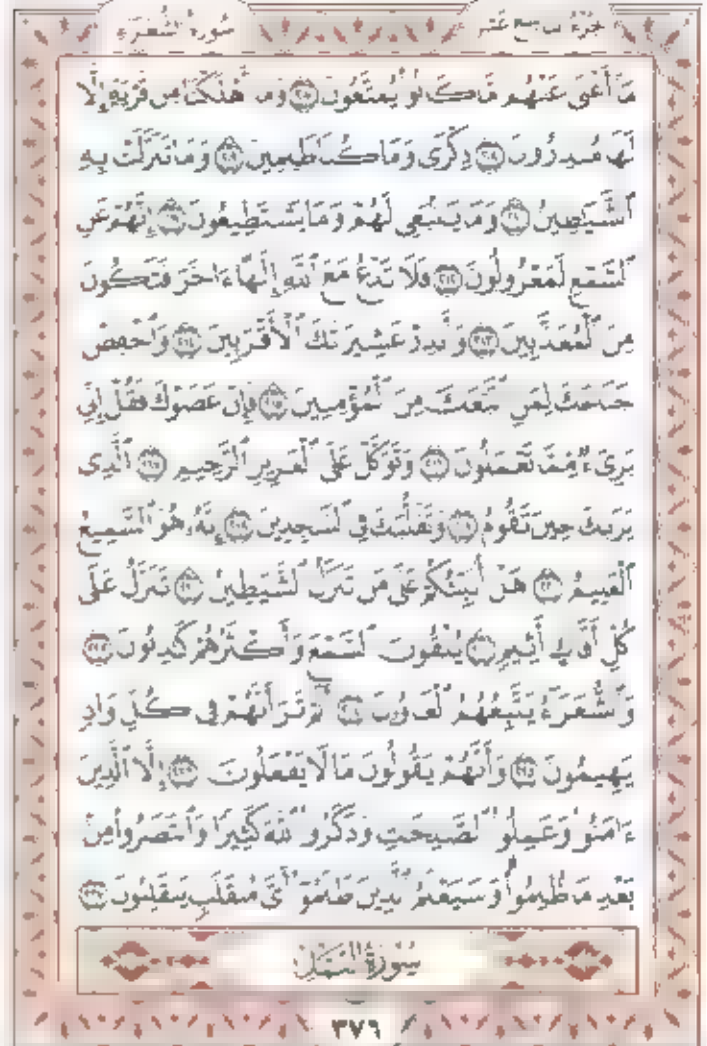 سُورَةُ الشُّعَرَاءِ
الجُزْءُ التَّاسِعَ عَشَرَ
مَآ أَغْنَىٰ عَنْهُم مَّا كَانُوا۟ يُمَتَّعُونَ ٢٠٧ وَمَآ أَهْلَكْنَا مِن قَرْيَةٍ إِلَّا
لَهَا مُنذِرُونَ ٢٠٨ ذِكْرَىٰ وَمَا كُنَّا ظَٰلِمِينَ ٢٠٩ وَمَا تَنَزَّلَتْ بِهِ
ٱلشَّيَٰطِينُ ٢١٠ وَمَا يَنۢبَغِى لَهُمْ وَمَا يَسْتَطِيعُونَ ٢١١ إِنَّهُمْ عَنِ
ٱلسَّمْعِ لَمَعْزُولُونَ ٢١٢ فَلَا تَدْعُ مَعَ ٱللَّهِ إِلَٰهًا ءَاخَرَ فَتَكُونَ
مِنَ ٱلْمُعَذَّبِينَ ٢١٣ وَأَنذِرْ عَشِيرَتَكَ ٱلْأَقْرَبِينَ ٢١٤ وَٱخْفِضْ
جَنَاحَكَ لِمَنِ ٱتَّبَعَكَ مِنَ ٱلْمُؤْمِنِينَ ٢١٥ فَإِنْ عَصَوْكَ فَقُلْ إِنِّى
بَرِىٓءٌ مِّمَّا تَعْمَلُونَ ٢١٦ وَتَوَكَّلْ عَلَى ٱلْعَزِيزِ ٱلرَّحِيمِ ٢١٧ ٱلَّذِى
يَرَىٰكَ حِينَ تَقُومُ ٢١٨ وَتَقَلُّبَكَ فِى ٱلسَّٰجِدِينَ ٢١٩ إِنَّهُۥ هُوَ ٱلسَّمِيعُ
ٱلْعَلِيمُ ٢٢٠ هَلْ أُنَبِّئُكُمْ عَلَىٰ مَن تَنَزَّلُ ٱلشَّيَٰطِينُ ٢٢١ تَنَزَّلُ عَلَىٰ
كُلِّ أَفَّاكٍ أَثِيمٍ ٢٢٢ يُلْقُونَ ٱلسَّمْعَ وَأَكْثَرُهُمْ كَٰذِبُونَ ٢٢٣
وَٱلشُّعَرَآءُ يَتَّبِعُهُمُ ٱلْغَاوُۥنَ ٢٢٤ أَلَمْ تَرَ أَنَّهُمْ فِى كُلِّ وَادٍ
يَهِيمُونَ ٢٢٥ وَأَنَّهُمْ يَقُولُونَ مَا لَا يَفْعَلُونَ ٢٢٦ إِلَّا ٱلَّذِينَ
ءَامَنُوا۟ وَعَمِلُوا۟ ٱلصَّٰلِحَٰتِ وَذَكَرُوا۟ ٱللَّهَ كَثِيرًا وَٱنتَصَرُوا۟ مِنۢ
بَعْدِ مَا ظُلِمُوا۟ وَسَيَعْلَمُ ٱلَّذِينَ ظَلَمُوٓا۟ أَىَّ مُنقَلَبٍ يَنقَلِبُونَ ٢٢٧
سُورَةُ النَّمْلِ
٣٧٦